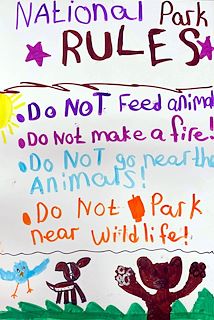 National Park
RULES
Do NOT Feed animal
Do Not make a fire!
Do NOT go near the
Animals!
Do Not Park
near Wildlife!